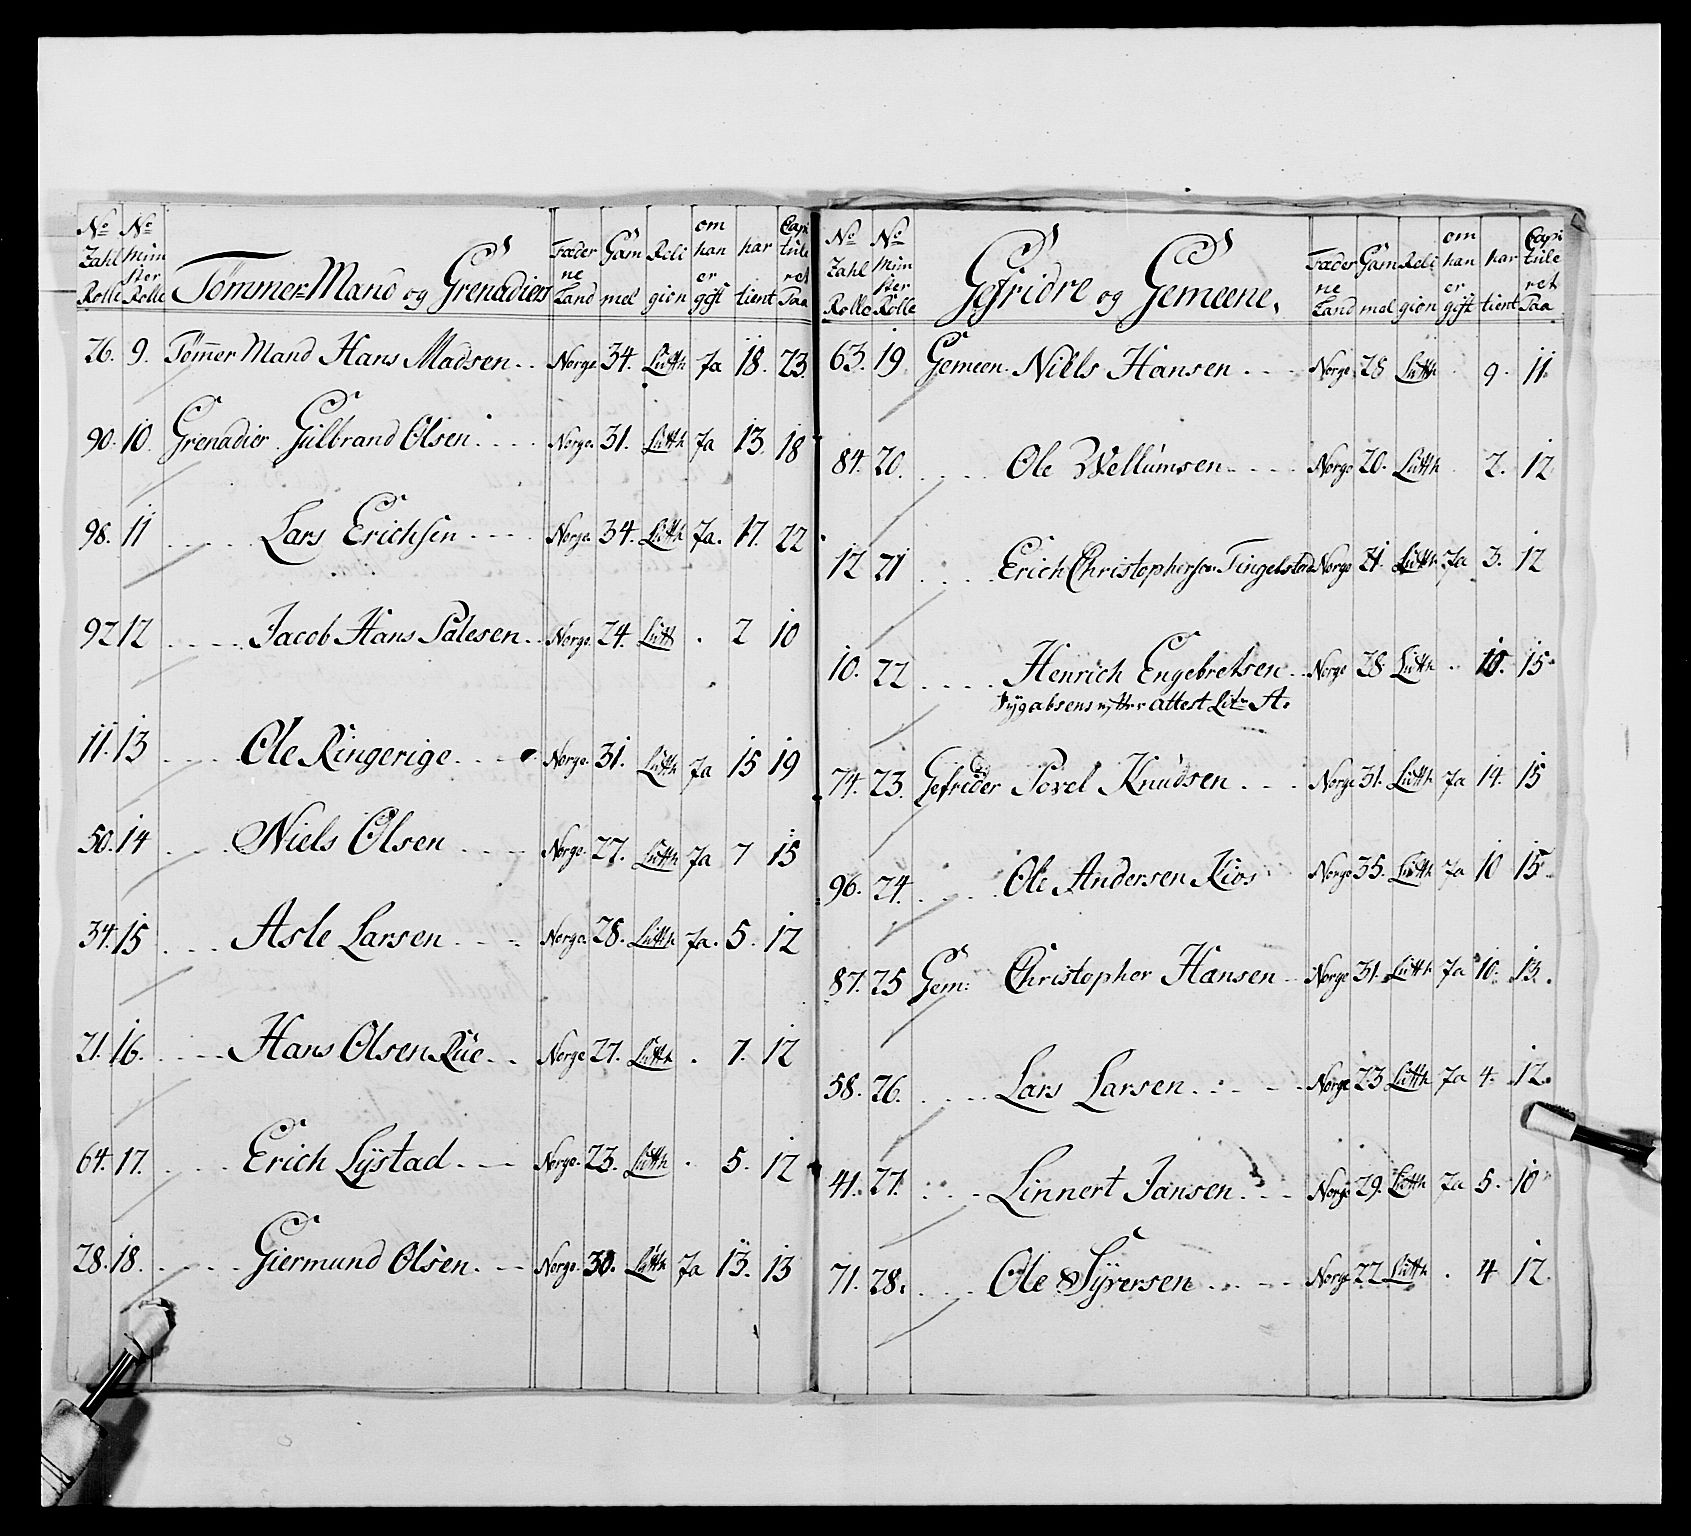 No Zahl Rolle No Mün ster Rolle Tømmer=Mand og Grenadiers Fæder ne Land Gam mel Reli gion om han er gift har tient Capi tule ret Paa
26. 9. Tømmer Mand Hans Madsen Norge 34. Lutth Ja 18. 23.
90. 10. Grenadier Gulbrand Olsen Norge. 31. Lutth Ja 13. 18
98. 11 Lars Erichsen Norge 34. Lutth Ja. 17. 22
92 12 Jacob Hans Salesen Norge. 24. Lutt . 2 10
11. 13 Ole Ringerige Norge. 31. Lutth Ja 15 19
50. 14 Niels Olsen Norge 27. Lutth Ja 7 15
34. 15 Asle Larsen Norge. 28. Lutth Ja. 5. 12
21. 16. Hans Olsen Rüe Norge 27. Lutth . 7. 12
64. 17. Erich Lÿstad Norge. 23. Lutth . 5. 12
28. 18. Giermund Olsen Norge. 30. Lutth Ja 13. 13
No Zahl Rolle No Mün ster Rolle Gefridre og Gemeene. Fæder ne Land Gam mel Reli gion om han er gift har tient Capi tule ret Paa
63. 19 Gemeen. Niels Hansen Norge 28 Lutth . 9. 11.
84. 20. Ole Wellumsen Norge 20. Lutth . 2. 12
12 21 Erich Christophersen Tingelstad Norge 21. Lutth Ja 3. 12
10. 22 Henrich Engebretsen Norge 28 Lutth . 10. 15.
Sÿg absens attest Litr A.
74. 23. Gefrider Povel Knudsen Norge 31. Lutth Ja 14. 15
96. 24. Ole Andersen Kios Norge 35. Lutth Ja 10 15.
87. 25 Gem: Christopher Hansen Norge 31. Lutth Ja 10. 13.
58. 26. Lars Larsen Norge 23 Lutth Ja 4. 12.
41. 27. Linnert Jansen Norge 29. Lutth Ja 5. 10
71. 28. Ole Sÿversen Norge 22 Lutth . 4 12.